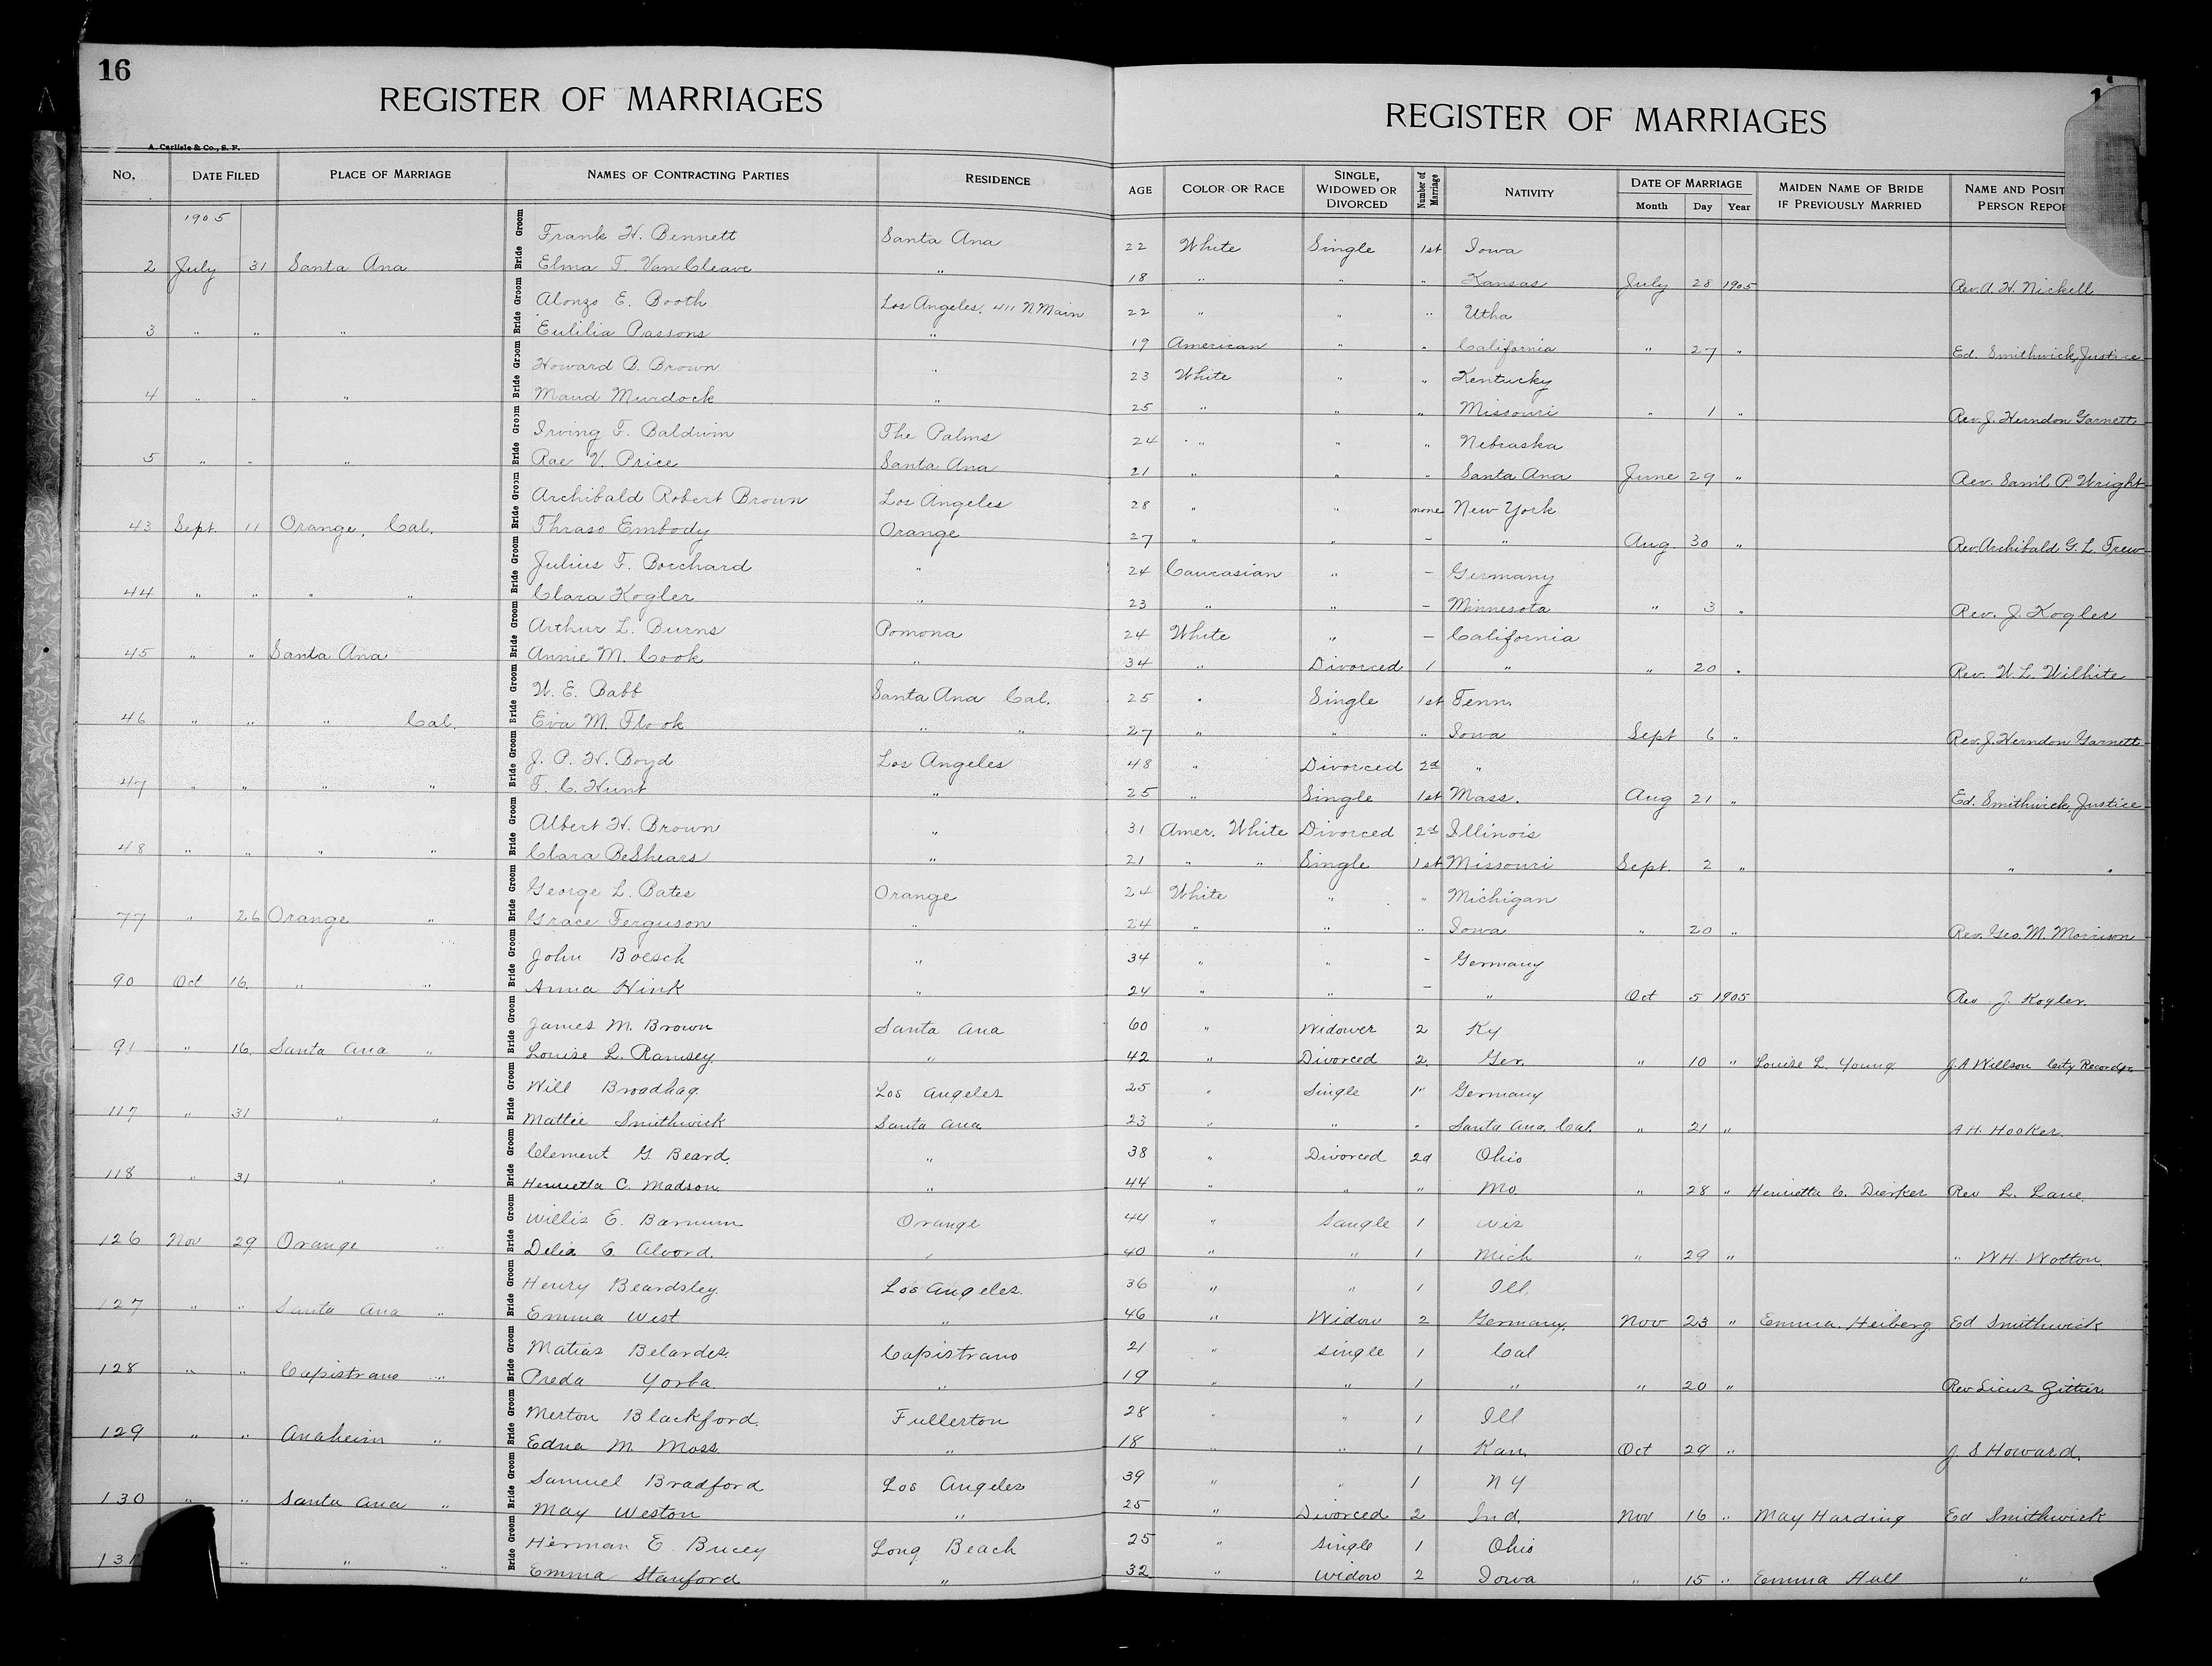 16
REGISTER OF MARRIAGES
REGISTER OF MARRIAGES
A. Carlisle & Co., S. F.
No. DATE FILED PLACE OF MARRIAGE NAMES OF CONTRACTING PARTIES RESIDENCE AGE COLOR OR RACE SINGLE, WIDOWED OR DIVORCED Number of Marriage NATIVITY DATE OF MARRIAGE Month Day Year MAIDEN NAME OF BRIDE IF PREVIOUSLY MARRIED NAME AND POSIT PERSON REPOR
1905
Groom Frank H. Bennett Santa Ana 22 White Single 1st Iowa
2 July 31 Santa Ana Bride Elma T. VanCleave " 18 " " " Kansas July 28 1905 Rev. A. H. Nickell
Groom Alonzo E. Booth Los Angeles, 411 N Main 22 " " " Utha
3 " " " Bride Eulilia Passons " 19 American " " California " 27 " Ed. Smithwick, Justice
Groom Howard B. Brown " 23 White " " Kentucky
4 " " " Bride Maud Murdock " 25 " " " Missouri " 1 " Rev. J. Herndon Garnett
Groom Irving F. Baldwin The Palms 24 " " " Nebraska
5 " " " Bride Rae V. Price Santa Ana 21 " " " Santa Ana June 29 " Rev. Saml. P. Wright
Groom Archibald Robert Brown Los Angeles 28 " " none New York
43 Sept. 11 Orange, Cal. Bride Thraso Embody Orange 27 " " - " Aug. 30 " Rev. Archibald G. L. Trew
Groom Julius F. Borchard " 24 Caucasian " - Germany
44 " " " " Bride Clara Kogler " 23 " " - Minnesota " 3 " Rev. J. Kogler
Groom Arthur L. Burns Pomona 24 White " - California
45 " " Santa Ana Bride Annie M. Cook " 34 " Divorced 1 " " 20 " Rev. W. L. Wilhite
Groom W. E. Babb Santa Ana Cal. 25 " Single 1st Tenn.
46 " " " Cal. Bride Eva M. Flook " " 27 " " " Iowa Sept 6 " Rev. J. Herndon Garnett
Groom J. P. H. Boyd Los Angeles 48 " Divorced 2d "
47 " " " " Bride T. C. Hunt " 25 " Single 1st Mass. Aug 21 " Ed. Smithwick, Justice
Groom Albert H. Brown " 31 Amer. White Divorced 2d Illinois
48 " " " " Bride Clara BeShears " 21 " " Single 1st Missouri Sept. 2 " " "
Groom George L. Bates Orange 24 White " " Michigan
77 " 26 Orange " Bride Grace Ferguson " 24 " " " Iowa " 20 " Rev. Geo. M. Morrison
Groom John Boesch " 34 " " - Germany
90 Oct 16 " " Bride Anna Hink " 24 " " - " Oct 5 1905 Rev J. Kogler.
Groom James M. Brown Santa Ana 60 " Widower 2 Ky
91 " 16 Santa Ana " Bride Louise L. Ramsey. " 42 " Divorced 2 Ger. " 10 " Louise L. Young J. A Willson City Recorder
Groom Will Brodhag. Los Angeles 25 " Single 1" Germany
117 " 31 " " Bride Mattie Smithwick Santa Ana 23 " " " Santa Ana, Cal. " 21 " A H. Hooker.
Groom Clement G. Beard. " 38 " Divorced 2d Ohio
118 " 31 " " Bride Henrietta C. Madson. " 44 " " " Mo. " 28 " Henrietta C. Dierker Rev L. Lane.
Groom Willis E. Barnum Orange 44 " Saugle 1 Wis
126 Nov 29 Orange " Bride Delia E. Alvord. " 40 " " 1 Mich " 29 " " W. H. Wotton.
Groom Henry Beardsley. Los Angeles. 36 " " 1 Ill.
127 " " Santa Ana " Bride Emma West " 46 " Widow 2 Germany. Nov 23 " Emma. Heiberg Ed Smithwick
Groom Matias Belardes. Capistrano 21 " Single 1 Cal
128 " " Capistrano " Bride Preda Yorba. " 19 " " 1 " " 20 "
Groom Merton Blackford. Fullerton 28 " " 1 Ill
129 " " Anaheim " Bride Edna M. Moss " 18 " " 1 Kan. Oct 29 " J S Howard.
Groom Samuel Bradford Los Angeles 39 " " 1 N Y
130 " " Santa Ana " Bride May Weston " 25 " Divorced 2 Ind. Nov 16 " May Harding Ed Smithwick
Groom Herman E. Bucey Long Beach 25 " Single 1 Ohio
131 " " " Bride Emma Stanford " 32 " Widow 2 Iowa " 15 " Emma Hall "